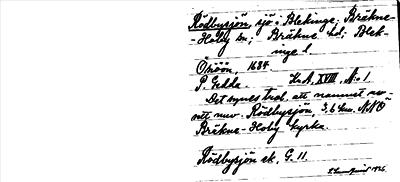 Rödbysjön, sjö i Blekinge; Bräkne-
-Hoby sn; Bräkne hd; Blek-
inge l.
1684
P. Gedda. K.A. XVIII, No 1
Det synes trol. att namnet av-
sett nuv. Rödbysjön, 3,6 km. NNÖ
Bräkne-Hoby kyrka.
Rödbysjön ek. G. 11.
1926